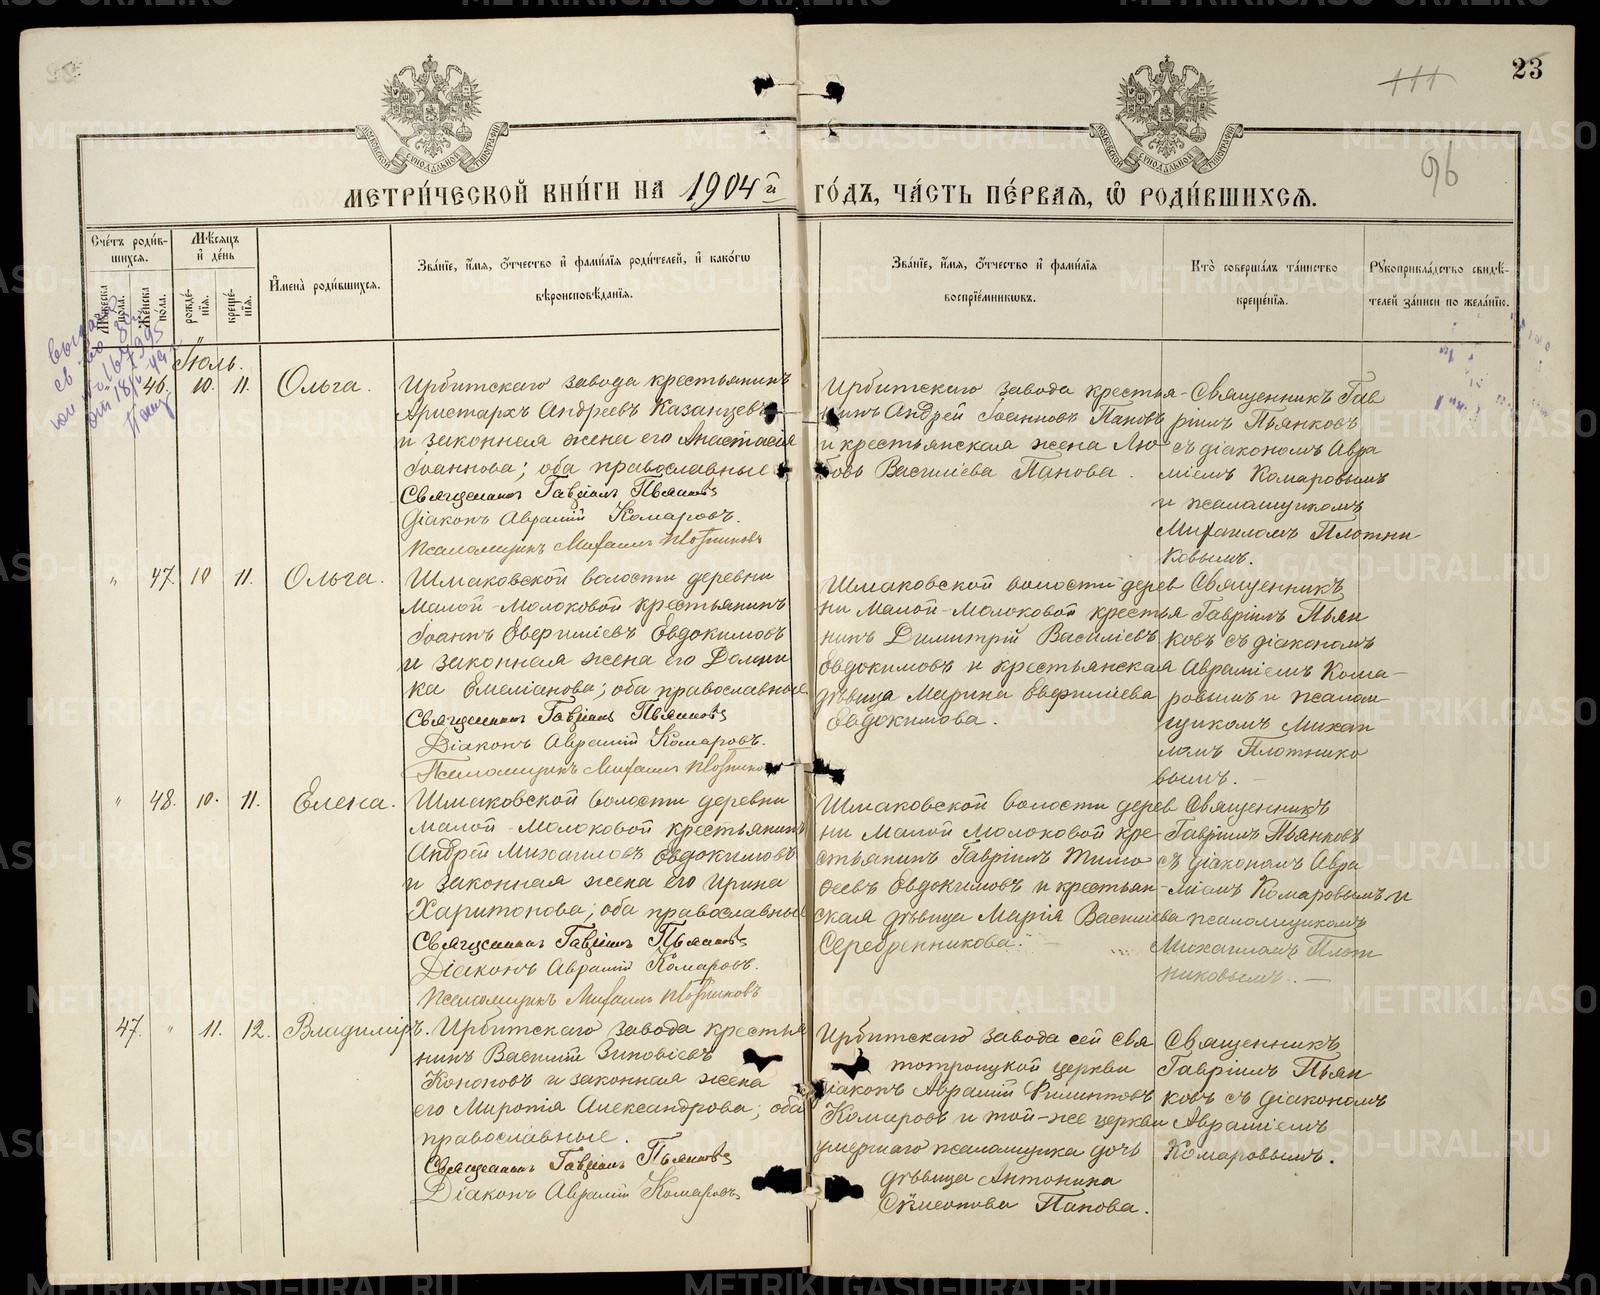 23
111
96
МЕТРИ́ЧЕСКОЙ КНИ́ГИ НА 1904й ГО́ДЪ, ЧА́СТЬ ПЕ́РВАѦ, Ѡ҆ РОДИ́ВШИХСѦ.
Сче́тъ роди́вшихсѧ.
Мꙋжеска по́ла.
Же́нска по́ла.
Мѣ́сѧцъ и҆ де́нь
рожде́нїѧ.
креще́нїѧ.
И҆мена̀ роди́вшихсѧ.
Зва́нїе, и҆́мѧ, ѻ҆́тчество и҆ фами́лїѧ роди́телей, и҆ како́гѡ
вѣроисповѣ́данїѧ.
Зва́нїе, и҆́мѧ, ѻ҆́тчество и҆ фами́лїѧ
воспрїе́мникѡвъ.
Кто̀ соверша́лъ та́инство
креще́нїѧ.
Рꙋкоприкла́дство свидѣ́-
телей за́писи по жела́нїю.
Іюль.
46. 10. 11. Ольга.
Ирбитскаго завода крестьянинъ
Аристархъ Андреевъ Казанцевъ
и законная жена его Анастасія
Іоаннова; оба православные
Священникъ Гавріилъ Пьянковъ
Діаконъ Аврамій Комаровъ.
Псаломщикъ Михаилъ Плотниковъ
Ирбитскаго завода крестья-
нинъ Андрей Іоанновъ Пановъ
и крестьянская жена Лю-
бовь Васильева Панова.
Священникъ Гав
ріилъ Пьянковъ
съ діакономъ Авра
міемъ Комаровымъ
и псаломщикомъ
Михаиломъ Плотни
ковымъ.
" 47. 10 11. Ольга.
Шмаковской волости деревни
Малой-Молоковой крестьянинъ
Іоаннъ Евфиміевъ Евдокимовъ
и законная жена его Домни
ка Емеліанова; оба православные
Священникъ Гавріилъ Пьянковъ
Діаконъ Аврамій Комаровъ.
Псаломщикъ Михаилъ Плотниковъ
Шмаковской волости дерев
ни Малой-Молоковой крестья
нинъ Димитрій Василіевъ
Евдокимовъ и крестьянская
дѣвица Марина Евфиміева
Евдокимова.
Священникъ
Гавріилъ Пьян
ковъ съ діакономъ
Авраміемъ Кома-
ровымъ и псалом-
щикомъ Михаи
ломъ Плотнико
вымъ.
" 48. 10. 11. Елена.
Шмаковской волости деревни
малой-Молоковой крестьянинъ
Андрей Михаиловъ Евдокимовъ
и законная жена его Ирина
Харитонова; оба православные
Священникъ Гавріилъ Пьянковъ
Діаконъ Аврамій Комаровъ.
Псаломщикъ Михаилъ Плотниковъ
Шмаковской волости дерев
ни Малой Молоковой кре-
стьянинъ Гавріилъ Тимо
феевъ Евдокимовъ и крестьян-
ская дѣвица Марія Василіева
Серебренникова.
Священникъ
Гавріилъ Пьянковъ
съ діакономъ Авра
міемъ Комаровымъ и
псаломщикомъ
Михаиломъ Плот
никовымъ.
47. " 11. 12. Владиміръ.
Ирбитскаго завода крестья
нинъ Василій Зиновіевъ
Кононовъ и законная жена
его Миропія Александрова; оба
православные.
Священникъ Гавріилъ Пьянковъ
Діаконъ Аврамій Комаровъ
Ирбитскаго завода сей Свя
тотроицкой церкви
діаконъ Аврамій Филипповъ
Комаровъ и той-же церкви
умершаго псаломщика дочь
дѣвица Антонина
Сѵмеонова Попова.
Священникъ
Гавріилъ Пьян
ковъ съ діакономъ
Авраміемъ
Комаровымъ.
METRIKI.GASO-URAL.RU